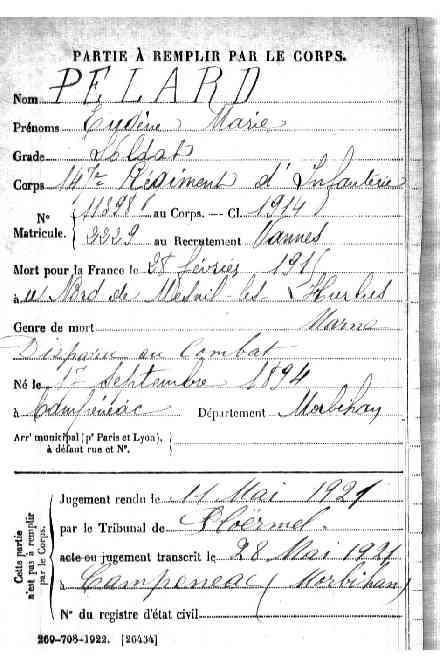 PARTIE À REMPLIR PAR LE CORPS.
Nom PELARD
Prénoms Eugène Marie
Grade Soldat
Corps Régiment d'Infanterie
N° Matricule. 11398 au Corps. — Cl. 1914
2229 au Recrutement Vannes
Mort pour la France le 28 février 1915
à au Nord de Mesnil-les-Hurlus
Marne
Genre de mort
Disparu au Combat
Né le 1er Septembre 1894
à Campénéac Département Morbihan
Arrt municipal (pr Paris et Lyon), à défaut rue et N°.
Cette partie n'est pas à remplir par le Corps.
Jugement rendu le 11 Mai 1921
par le Tribunal de Ploërmel
acte ou jugement transcrit le 28 Mai 1921
à Campeneac (Morbihan)
N° du registre d'état civil
269-708-1922. [26434]